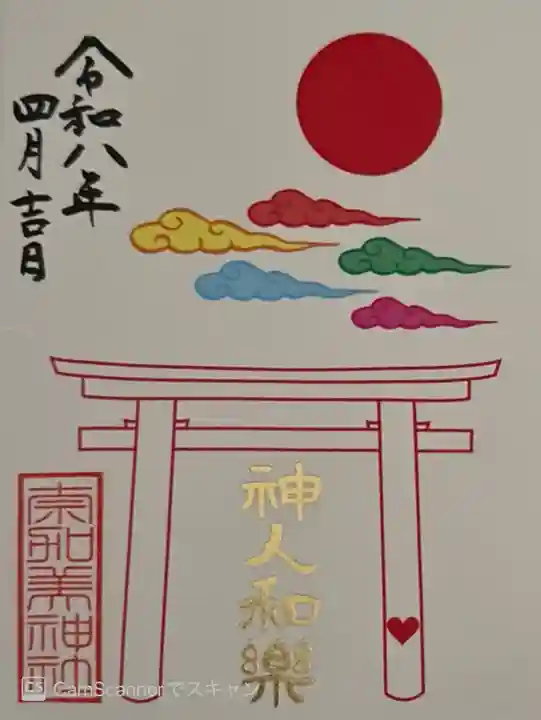 令和八年
四月吉日
神人和樂
CamScannerでスキャン